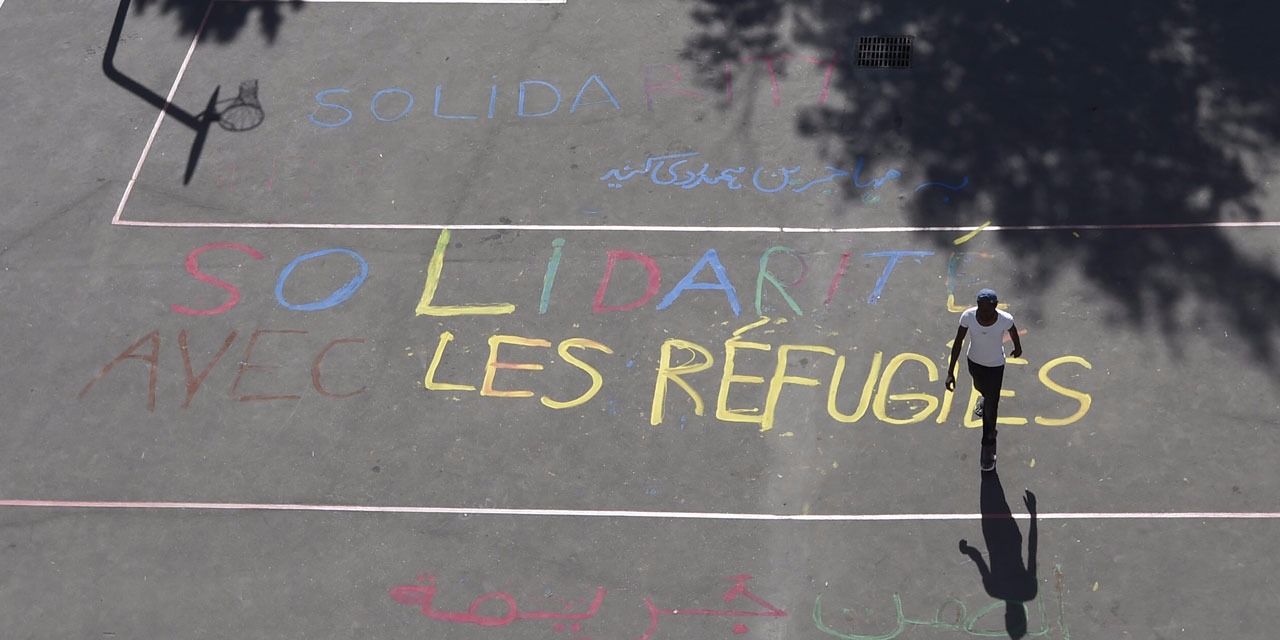 SOLIDARITY
مهاجرین همدردی کنید
SOLIDARITÉ
AVEC LES RÉFUGIÉS
الصمت جريمة